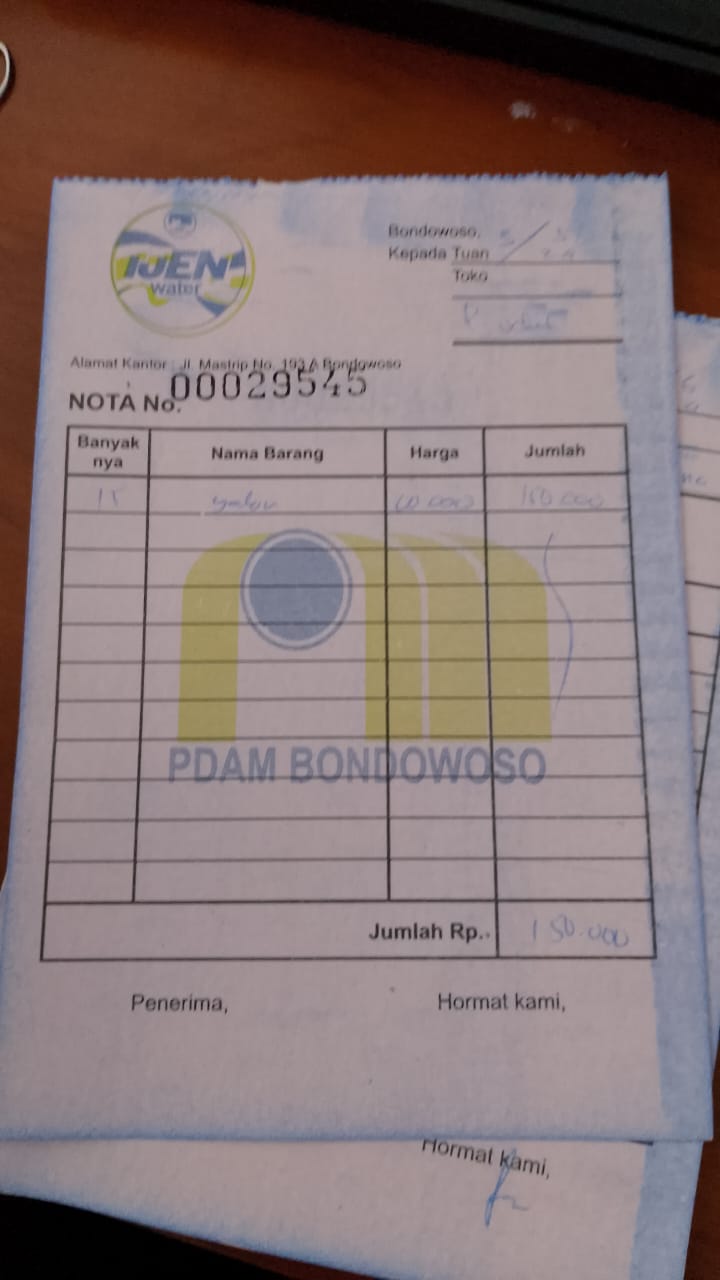 IJEN
water
Bondowoso,
Kepada Tuan
Toko
Alamat Kantor : Jl. Mastrip No. 193 A Bondowoso
NOTA No. 00029545
Banyak nya Nama Barang Harga Jumlah
15 galon 10.000 150.000
PDAM BONDOWOSO
Jumlah Rp. 150.000
Penerima, Hormat kami,
Hormat kami,